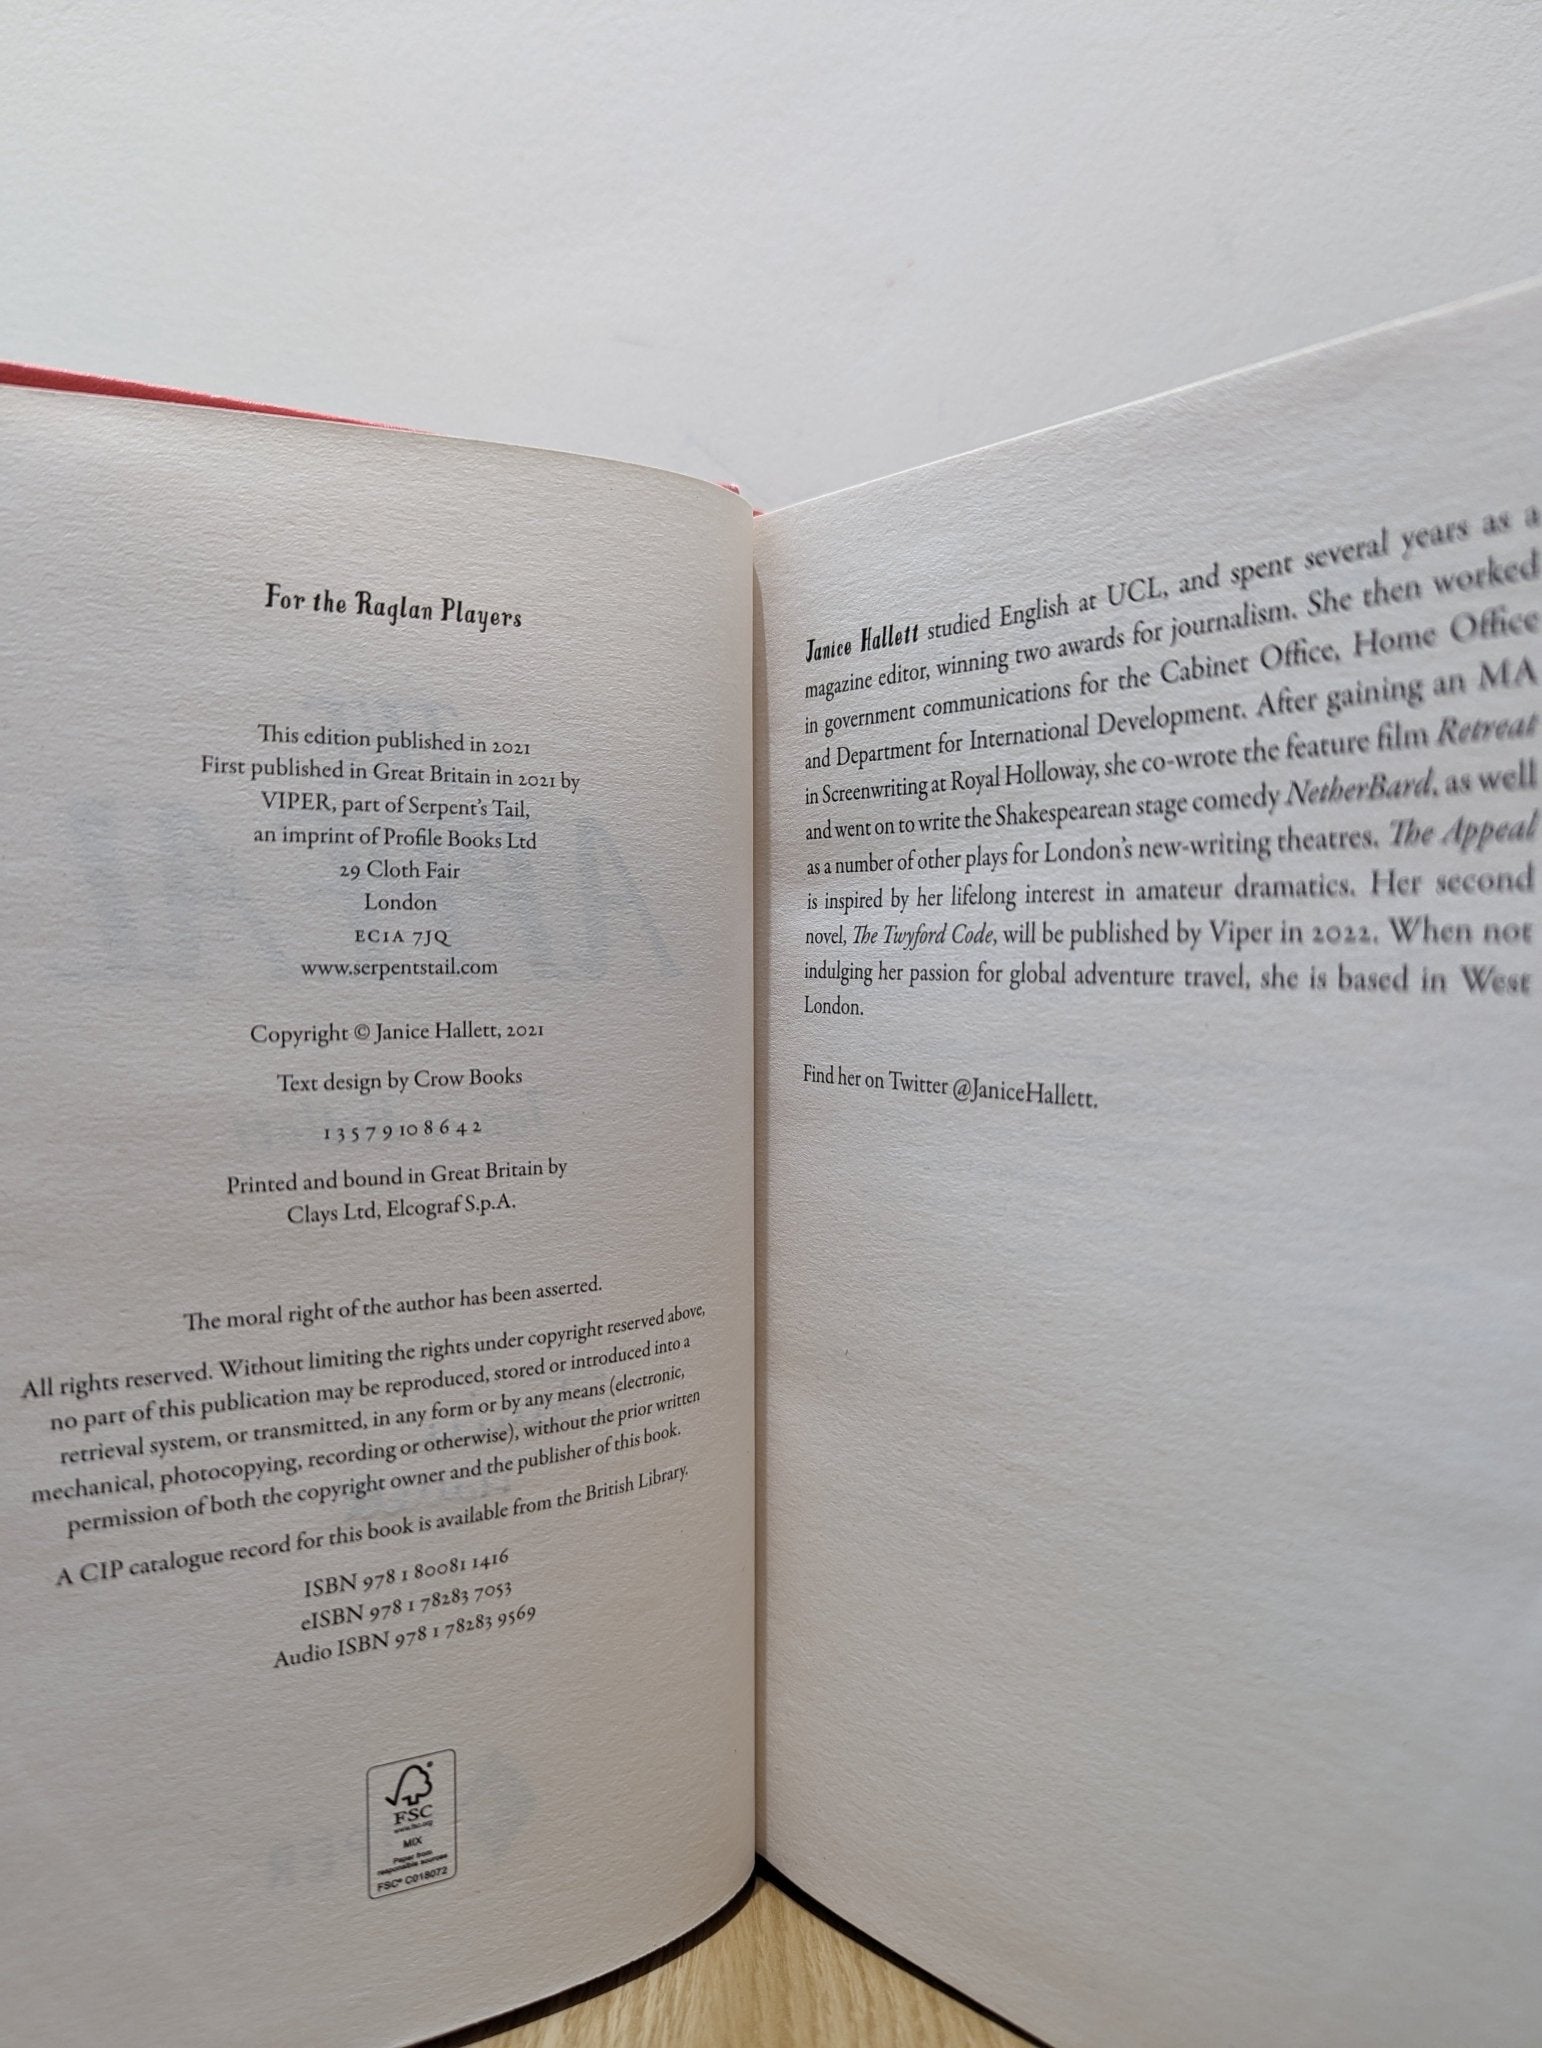 For the Raglan Players
This edition published in 2021
First published in Great Britain in 2021 by
VIPER, part of Serpent's Tail,
an imprint of Profile Books Ltd
29 Cloth Fair
London
EC1A 7JQ
www.serpentstail.com
Copyright © Janice Hallett, 2021
Text design by Crow Books
1 3 5 7 9 10 8 6 4 2
Printed and bound in Great Britain by
Clays Ltd, Elcograf S.p.A.
The moral right of the author has been asserted.
All rights reserved. Without limiting the rights under copyright reserved above,
no part of this publication may be reproduced, stored or introduced into a
retrieval system, or transmitted, in any form or by any means (electronic,
mechanical, photocopying, recording or otherwise), without the prior written
permission of both the copyright owner and the publisher of this book.
A CIP catalogue record for this book is available from the British Library.
ISBN 978 1 80081 1416
eISBN 978 1 78283 7053
Audio ISBN 978 1 78283 9569
FSC
www.fsc.org
MIX
Paper from
responsible sources
FSC® C018072
Janice Hallett studied English at UCL, and spent several years as a
magazine editor, winning two awards for journalism. She then worked
in government communications for the Cabinet Office, Home Office
and Department for International Development. After gaining an MA
in Screenwriting at Royal Holloway, she co-wrote the feature film Retreat
and went on to write the Shakespearean stage comedy NetherBard, as well
as a number of other plays for London's new-writing theatres. The Appeal
is inspired by her lifelong interest in amateur dramatics. Her second
novel, The Twyford Code, will be published by Viper in 2022. When not
indulging her passion for global adventure travel, she is based in West
London.
Find her on Twitter @JaniceHallett.